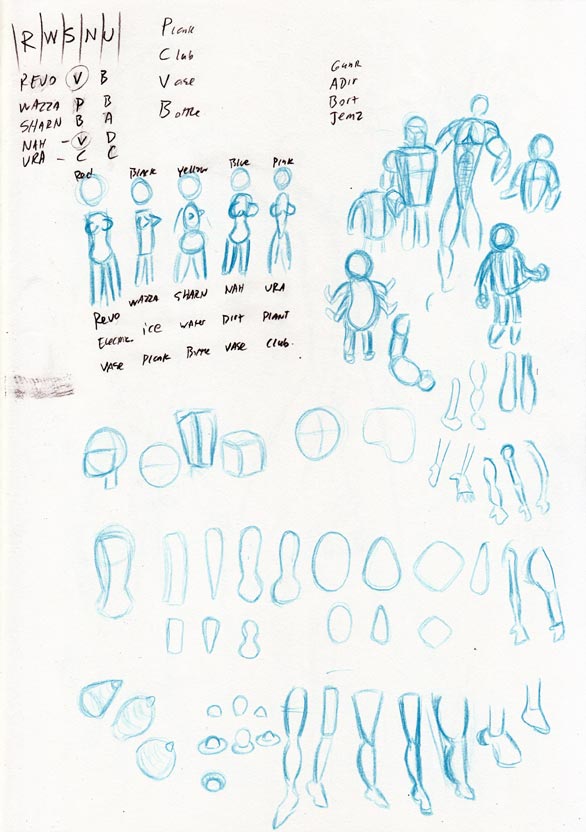 R W S N U
Plank
Club
Vase
Bottle
REVO V B
WAZZA P B
SHARN B A
NAH - V D
URA - C C
GUAR
ADIT
Bort
Jemz
Red Black Yellow Blue Pink
Revo WAZZA SHARN NAH URA
Electric ice water Dirt PLANT
VASE Plank Bottle VASE Club.